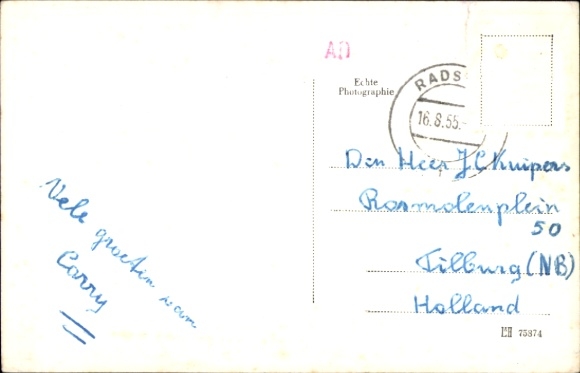 AD
Echte
Photographie
RADS
16.8.55.-
Den Heer J.C Knipers
Rosmolenplein
50
Tilburg (NB)
Holland
Vele groeten van
Corry
75374